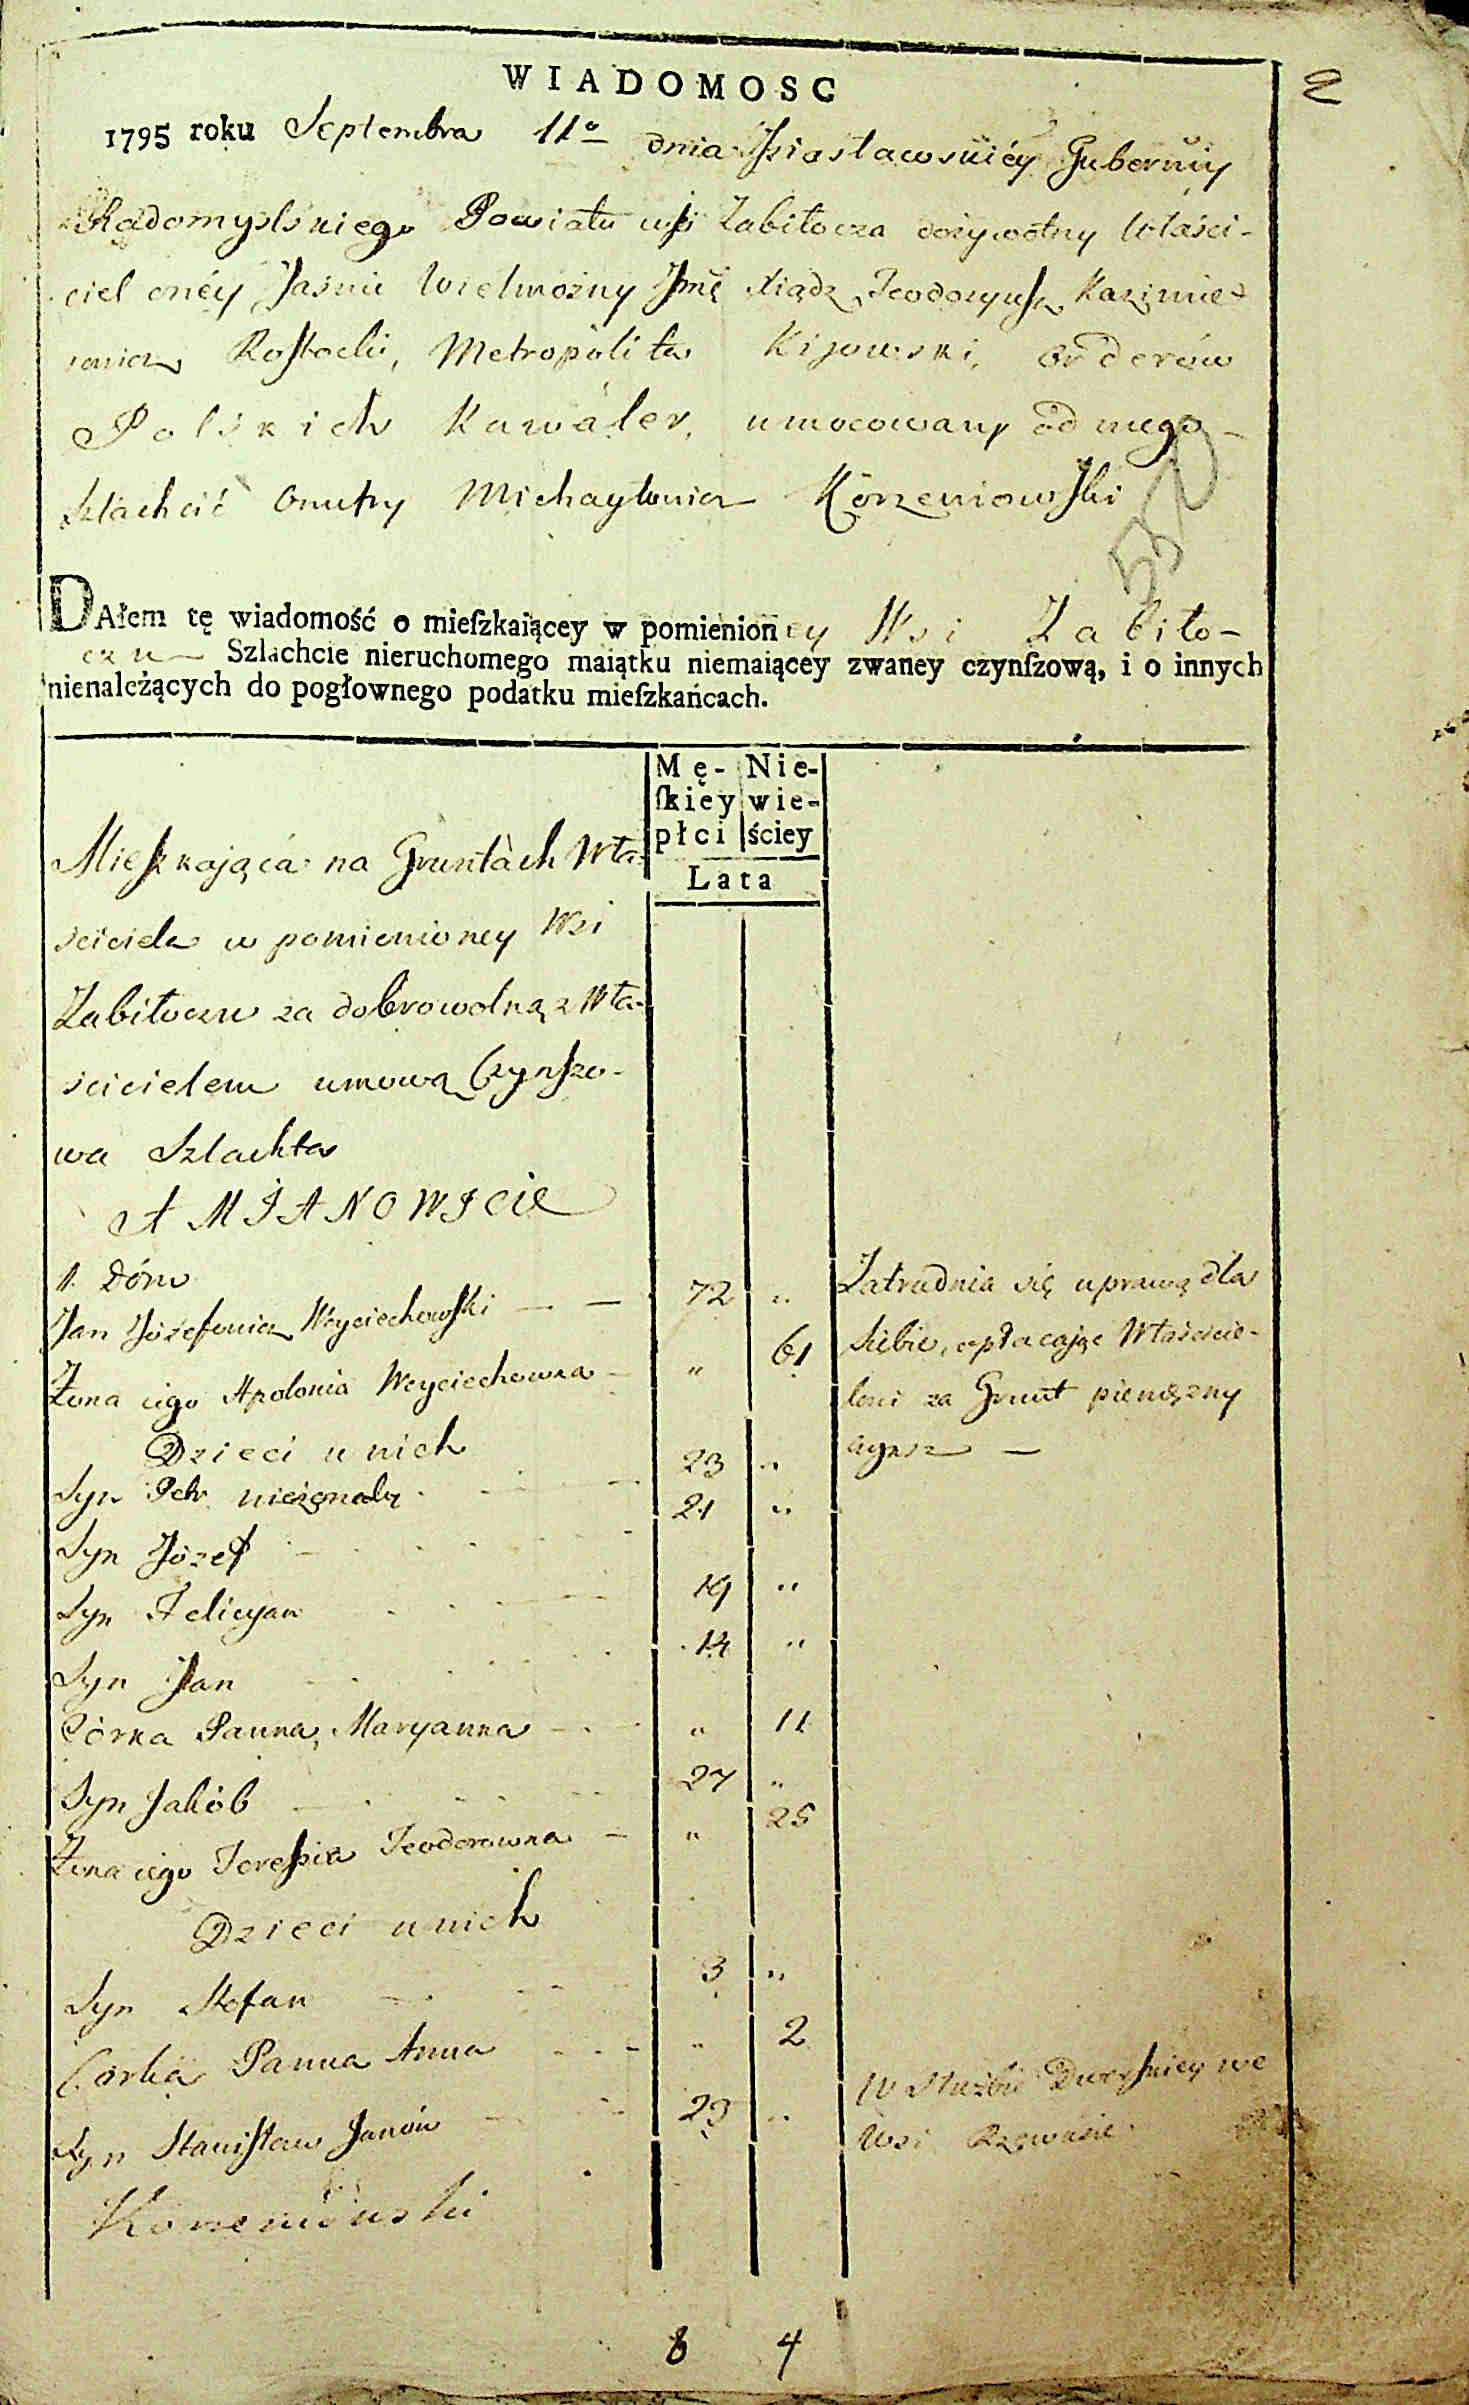 2
WIADOMOSC
1795 roku Septembra 11º dnia Iziasławskiéy Guberniy
Radomyslskiego Powiatu wsi Zabiłocza dożywotny Właści-
ciel onéy Jaśnie Wielmożny Jmć Xiądz Teodozyusz Kazimie-
Rostocki, Metropolita Kijowski, Orderów
Polskich Kawaler, umocowany od niego
szlachcić Onufry Michayłowicz Korzeniowski
DAłem tę wiadomość o mieſzkaiącey w pomienioney Wsi Zabiło-
czu Szlachcie nieruchomego maiątku niemaiącey zwaney czynſzową, i o innych
nienależących do pogłownego podatku mieſzkańcach.
Mę- Nie-
ſkiey wie-
płci ściey
Lata
Mieszkająca na Gruntach Wła-
sciciela w pomienioney Wsi
Zabiłoczu za dobrowolną z Wła-
scicielem umową Czynszo-
wa Szlachta
A MIANOWICIE
1. Dóm
Jan Józefowicz Woyciechowski — — 72 „ Zatrudnia się uprawą dla
Żona iego Apolonia Woyciechowna — „ 61 siebie, opłacając Właścicie-
lowi za Grunt pieniężny
Dzieci u nich czynsz —
Syn Petr nieżonaty 23 „
Syn Józef 21 „
Syn Felicyan 19 „
Syn Jan 14 „
Córka Panna Maryanna „ 11
Syn Jakób 27 „
Żona iego Teressia Teodorowna — „ 25
Dzieci u nich
Syn Stefan 3 „
Corka Panna Anna „ 2
Syn Stanisław Janów 29 „ W służbie Dworskiey we
Wsi
Korzeniowski
8 4